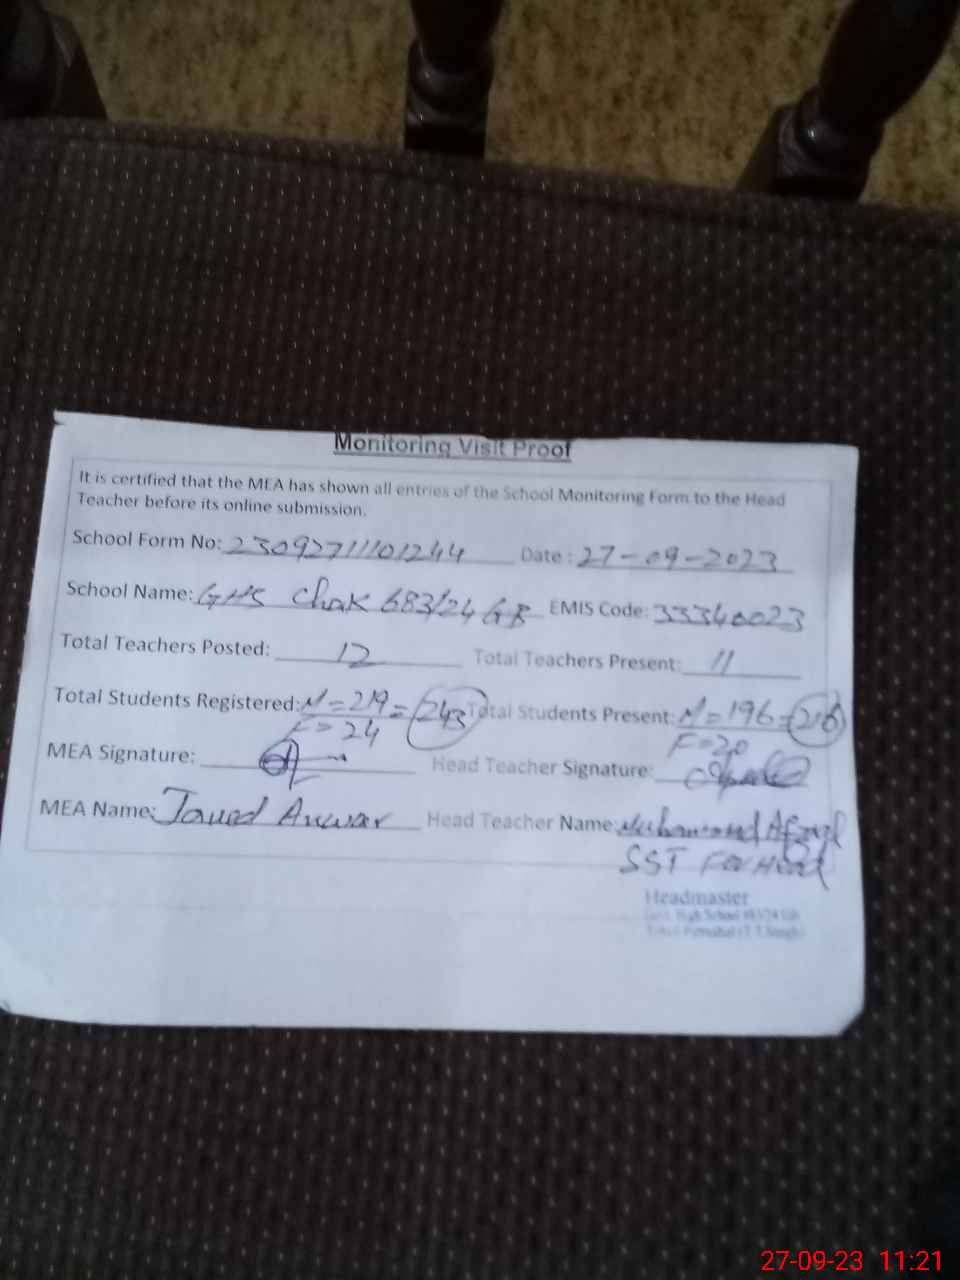 Monitoring Visit Proof
It is certified that the MEA has shown all entries of the School Monitoring Form to the Head
Teacher before its online submission.
School Form No: 23092711101244 Date : 27-09-2023
School Name: GHS Chak 683/24 GB EMIS Code: 33340023
Total Teachers Posted: 12 Total Teachers Present: 11
Total Students Registered: M=219=243 Total Students Present: M=196=216
F=24 F=20
MEA Signature: Head Teacher Signature:
MEA Name: Javed Anwar Head Teacher Name: Muhammad Afzal
SST For Head
Headmaster
High School 683/24 GB
27-09-23 11:21